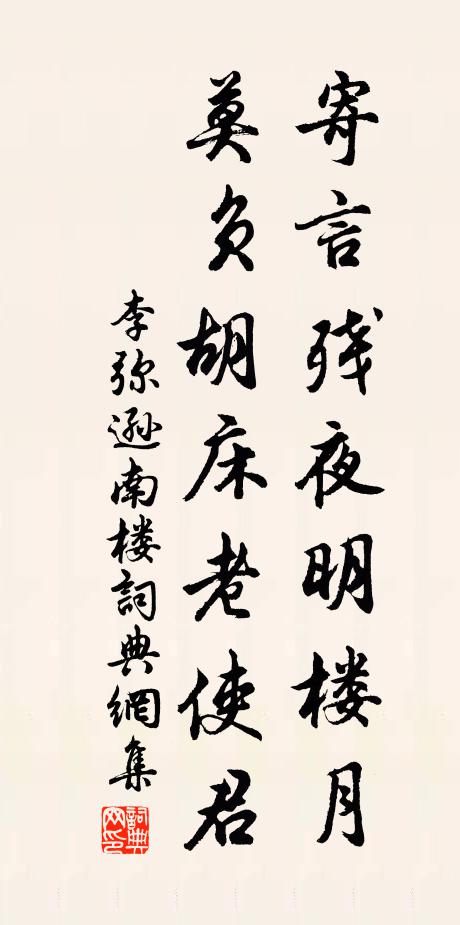 寄言残夜明楼月
莫负胡床老使君
李弥逊南楼詞典網集
詞典网印